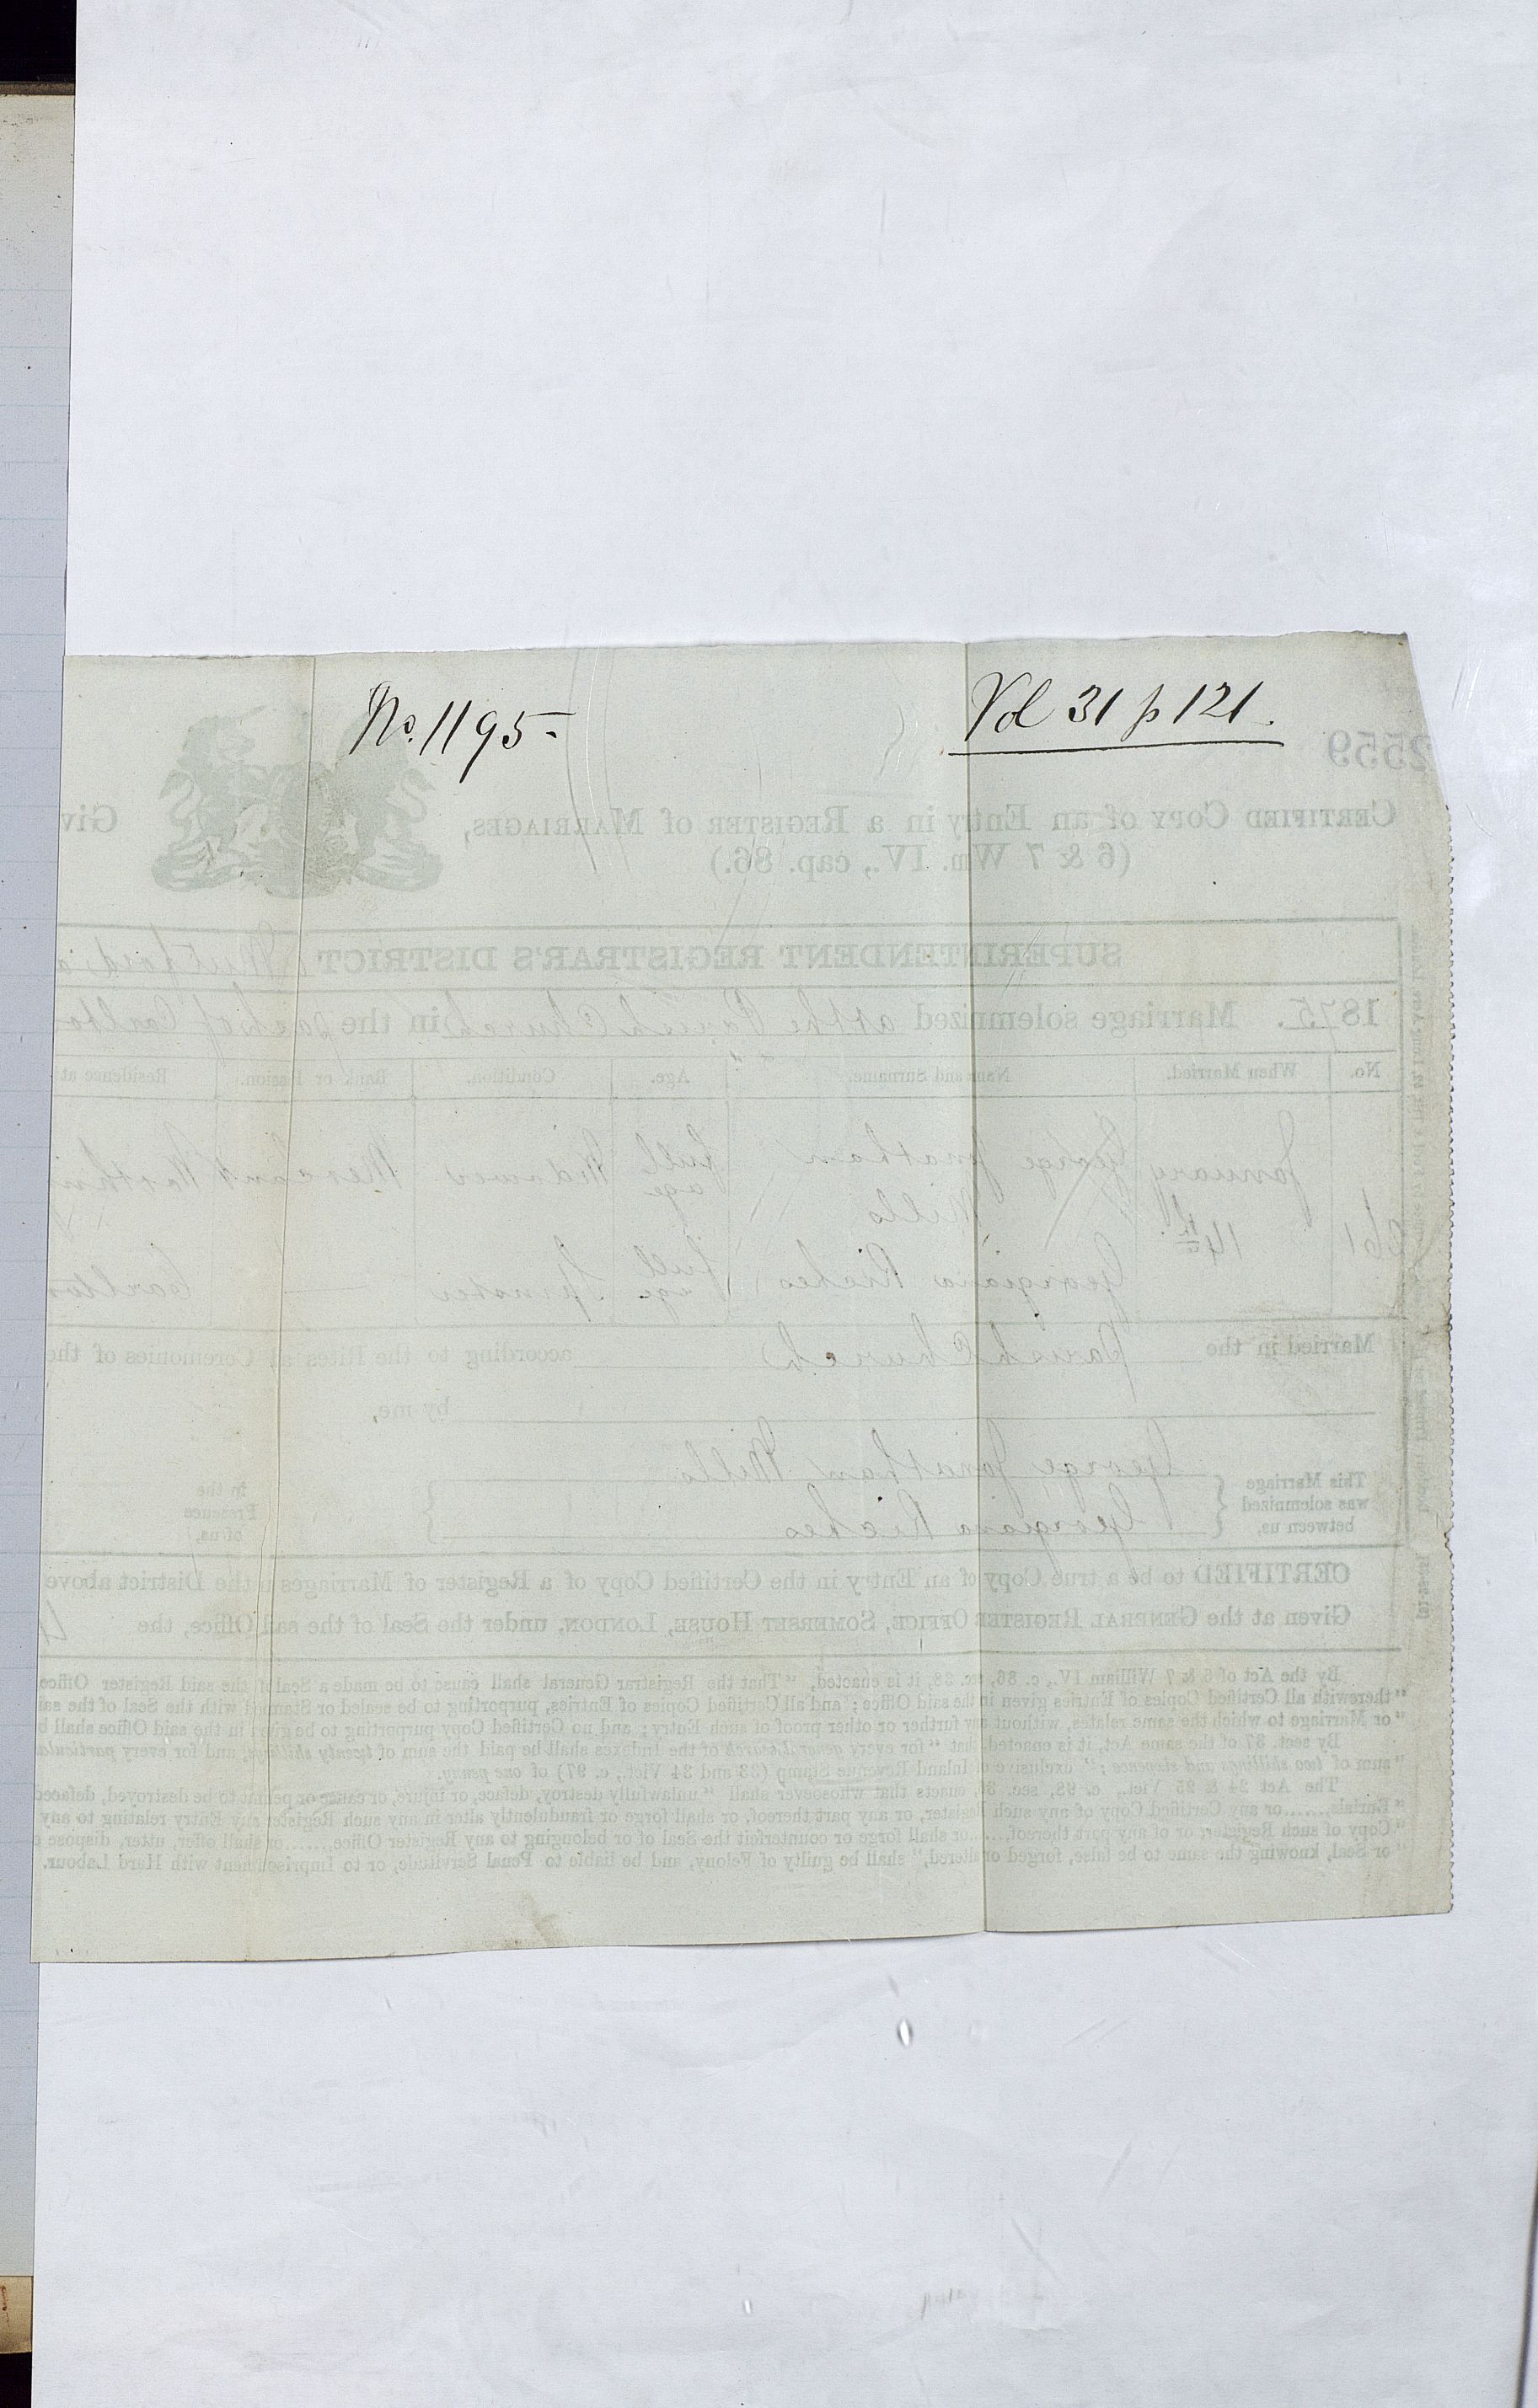 No. 1195-
Vol 31 p 121.
2559
CERTIFIED COPY of an Entry in a REGISTER of MARRIAGES,
Giv
(6 & 7 Wm. IV., cap. 86.)
SUPERINTENDENT REGISTRAR'S DISTRICT Mutford
1875. Marriage solemnized at the Parish Church in the parish of Carlto
No. When Married. Name and Surname. Age. Condition. Rank or Profession. Residence at
January George Jonathan full Widower Merchant
Mills age
61 14th
Georgiana Riches full Spinster — Carlton
age
Married in the Parish Church according to the Rites and Ceremonies of the
by me,
This Marriage was solemnized between us, George Jonathan Mills
Georgiana Riches
In the Presence of us,
CERTIFIED to be a true Copy of an Entry in the Certified Copy of a Register of Marriages in the District above
Given at the GENERAL REGISTER OFFICE, SOMERSET HOUSE, LONDON, under the Seal of the said Office, the 4
By the Act of 6 & 7 William IV., c. 86, sec. 38, it is enacted, "That the Registrar General shall cause to be made a Seal of the said Register Office
"therewith all Certified Copies of Entries given in the said Office; and all Certified Copies of Entries, purporting to be sealed or Stamped with the Seal of the sai
"or Marriage to which the same relates, without any further or other proof of such Entry; and no Certified Copy purporting to be given in the said Office shall b
By sect. 37 of the same Act, it is enacted that "for every general search of the Indexes shall be paid the sum of twenty shillings, and for every particula
"sum of two shillings and sixpence;" exclusive of Inland Revenue Stamp (33 and 34 Vict., c. 97) of one penny.
The Act 24 & 25 Vict., c. 98, sec. 36, enacts that whosoever shall "unlawfully destroy, deface, or injure, or cause or permit to be destroyed, defaced
"Burials.......or any Certified Copy of any such Register, or any part thereof, or shall forge or fraudulently alter in any such Register any Entry relating to any
"Copy of such Register, or of any part thereof,......or shall forge or counterfeit the Seal of or belonging to any Register Office.......or shall offer, utter, dispose o
"or Seal, knowing the same to be false, forged or altered," shall be guilty of Felony, and be liable to Penal Servitude, or to Imprisonment with Hard Labour.